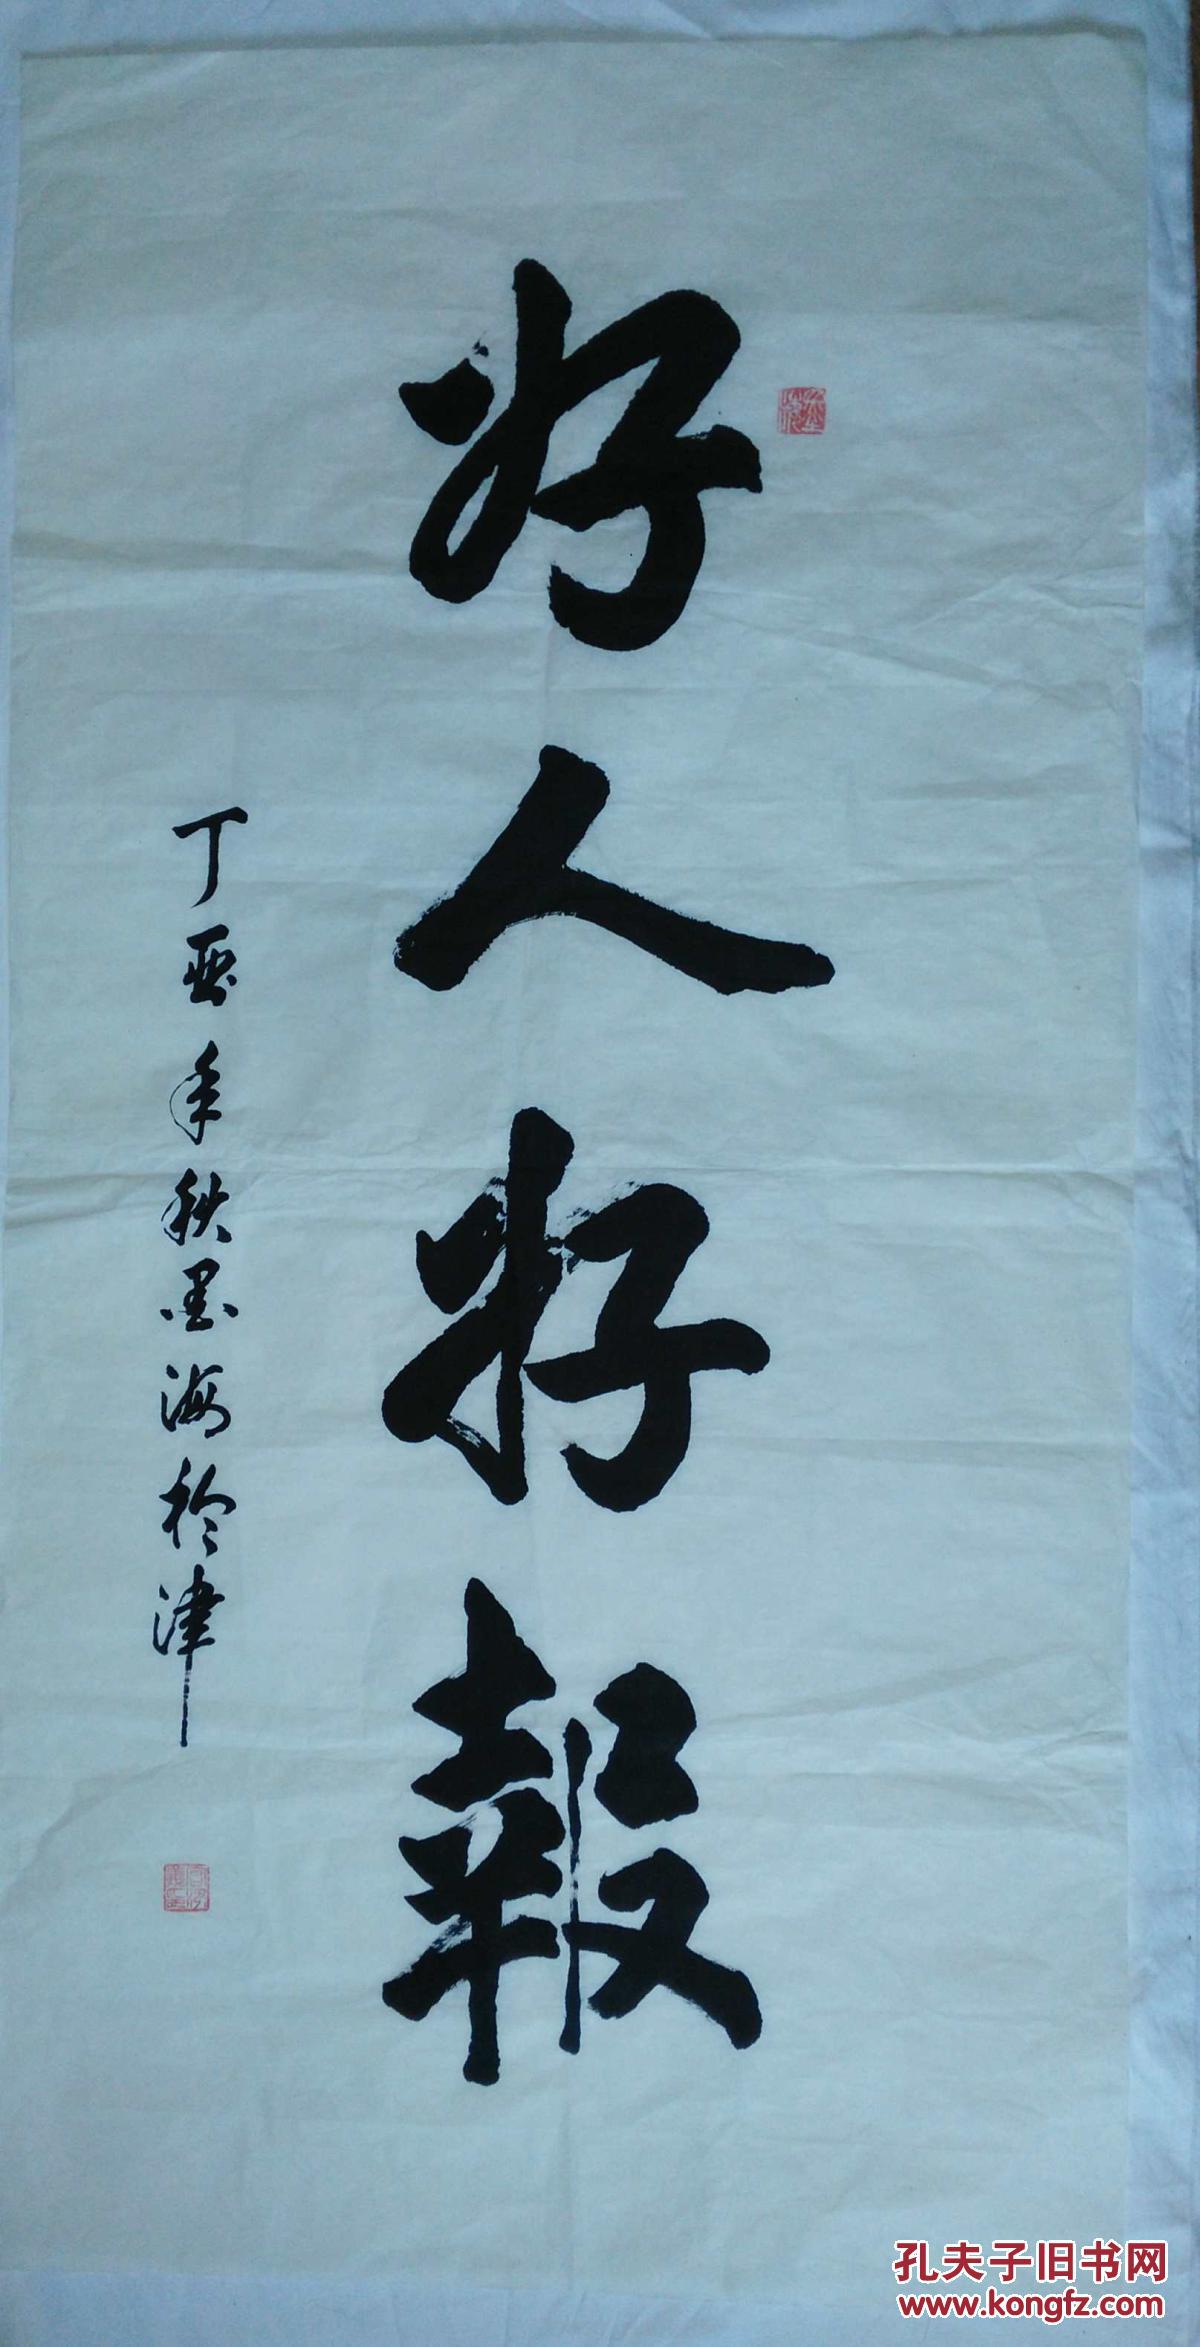 好人好報
丁酉年秋墨海於津
孔夫子旧书网
www.kongfz.com